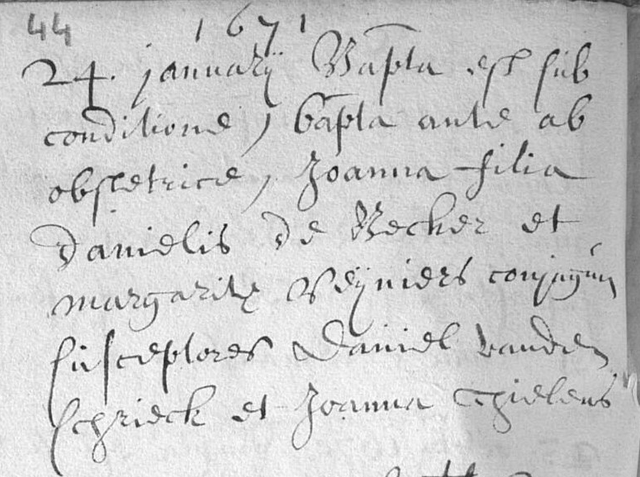 44 1671
24. januarij Bapta est sub
conditione, bapta ante ab
obstetrice, Joanna filia
danielis de Becker et
margaritæ Reijniers conjugum
susceptores Daniel vanden
schrieck et Joanna Thielens